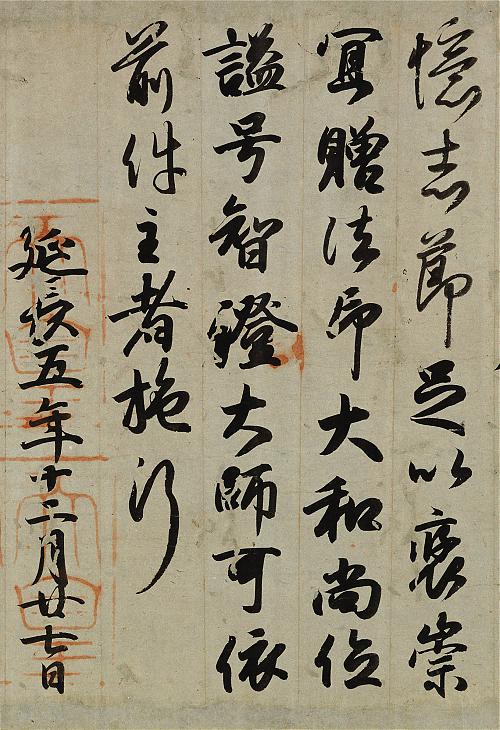 憶志節足以褒崇
冝贈法印大和尚位
謚号智證大師可依
前件主者施行
延長五年十二月廿七日